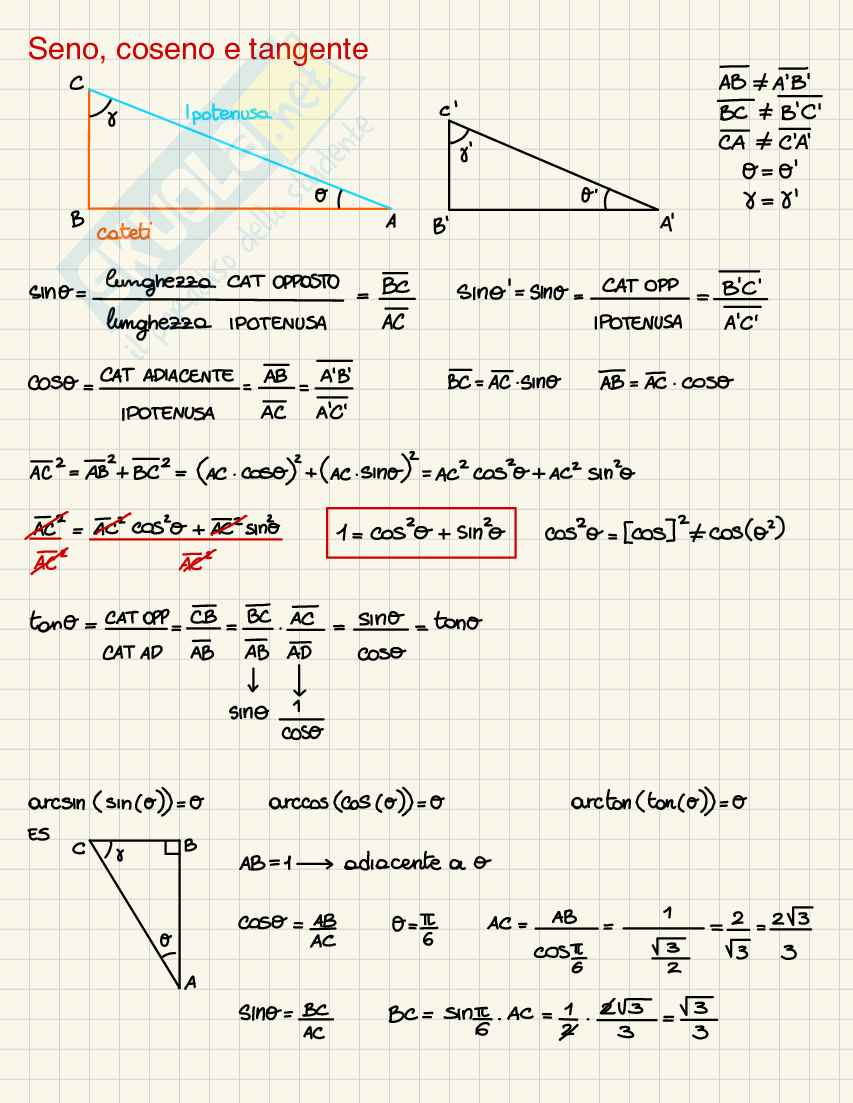 Seno, coseno e tangente
C γ Ipotenusa θ B A cateti
C' γ' θ' B' A'
AB ≠ A'B'
BC ≠ B'C'
CA ≠ C'A'
θ = θ'
γ = γ'
SKUOLA.net
il paradiso dello studente
sinθ = lunghezza CAT OPPOSTO / lunghezza IPOTENUSA = BC / AC    sinθ' = sinθ = CAT OPP / IPOTENUSA = B'C' / A'C'
cosθ = CAT ADIACENTE / IPOTENUSA = AB / AC = A'B' / A'C'    BC = AC · sinθ    AB = AC · cosθ
AC² = AB² + BC² = (AC · cosθ)² + (AC · sinθ)² = AC² cos²θ + AC² sin²θ
AC² / AC² = AC² cos²θ + AC² sin²θ / AC²    1 = cos²θ + sin²θ    cos²θ = [cos]² ≠ cos(θ²)
tanθ = CAT OPP / CAT AD = CB / AB = BC / AB · AC / AD = sinθ / cosθ = tanθ
↓ ↓
sinθ 1 / cosθ
arcsin (sin(θ)) = θ    arccos (cos(θ)) = θ    arctan (tan(θ)) = θ
ES
C γ B θ A
AB = 1 → adiacente a θ
cosθ = AB / AC    θ = π / 6    AC = AB / cos π/6 = 1 / √3/2 = 2 / √3 = 2√3 / 3
sinθ = BC / AC    BC = sin π/6 · AC = 1 / 2 · 2√3 / 3 = √3 / 3